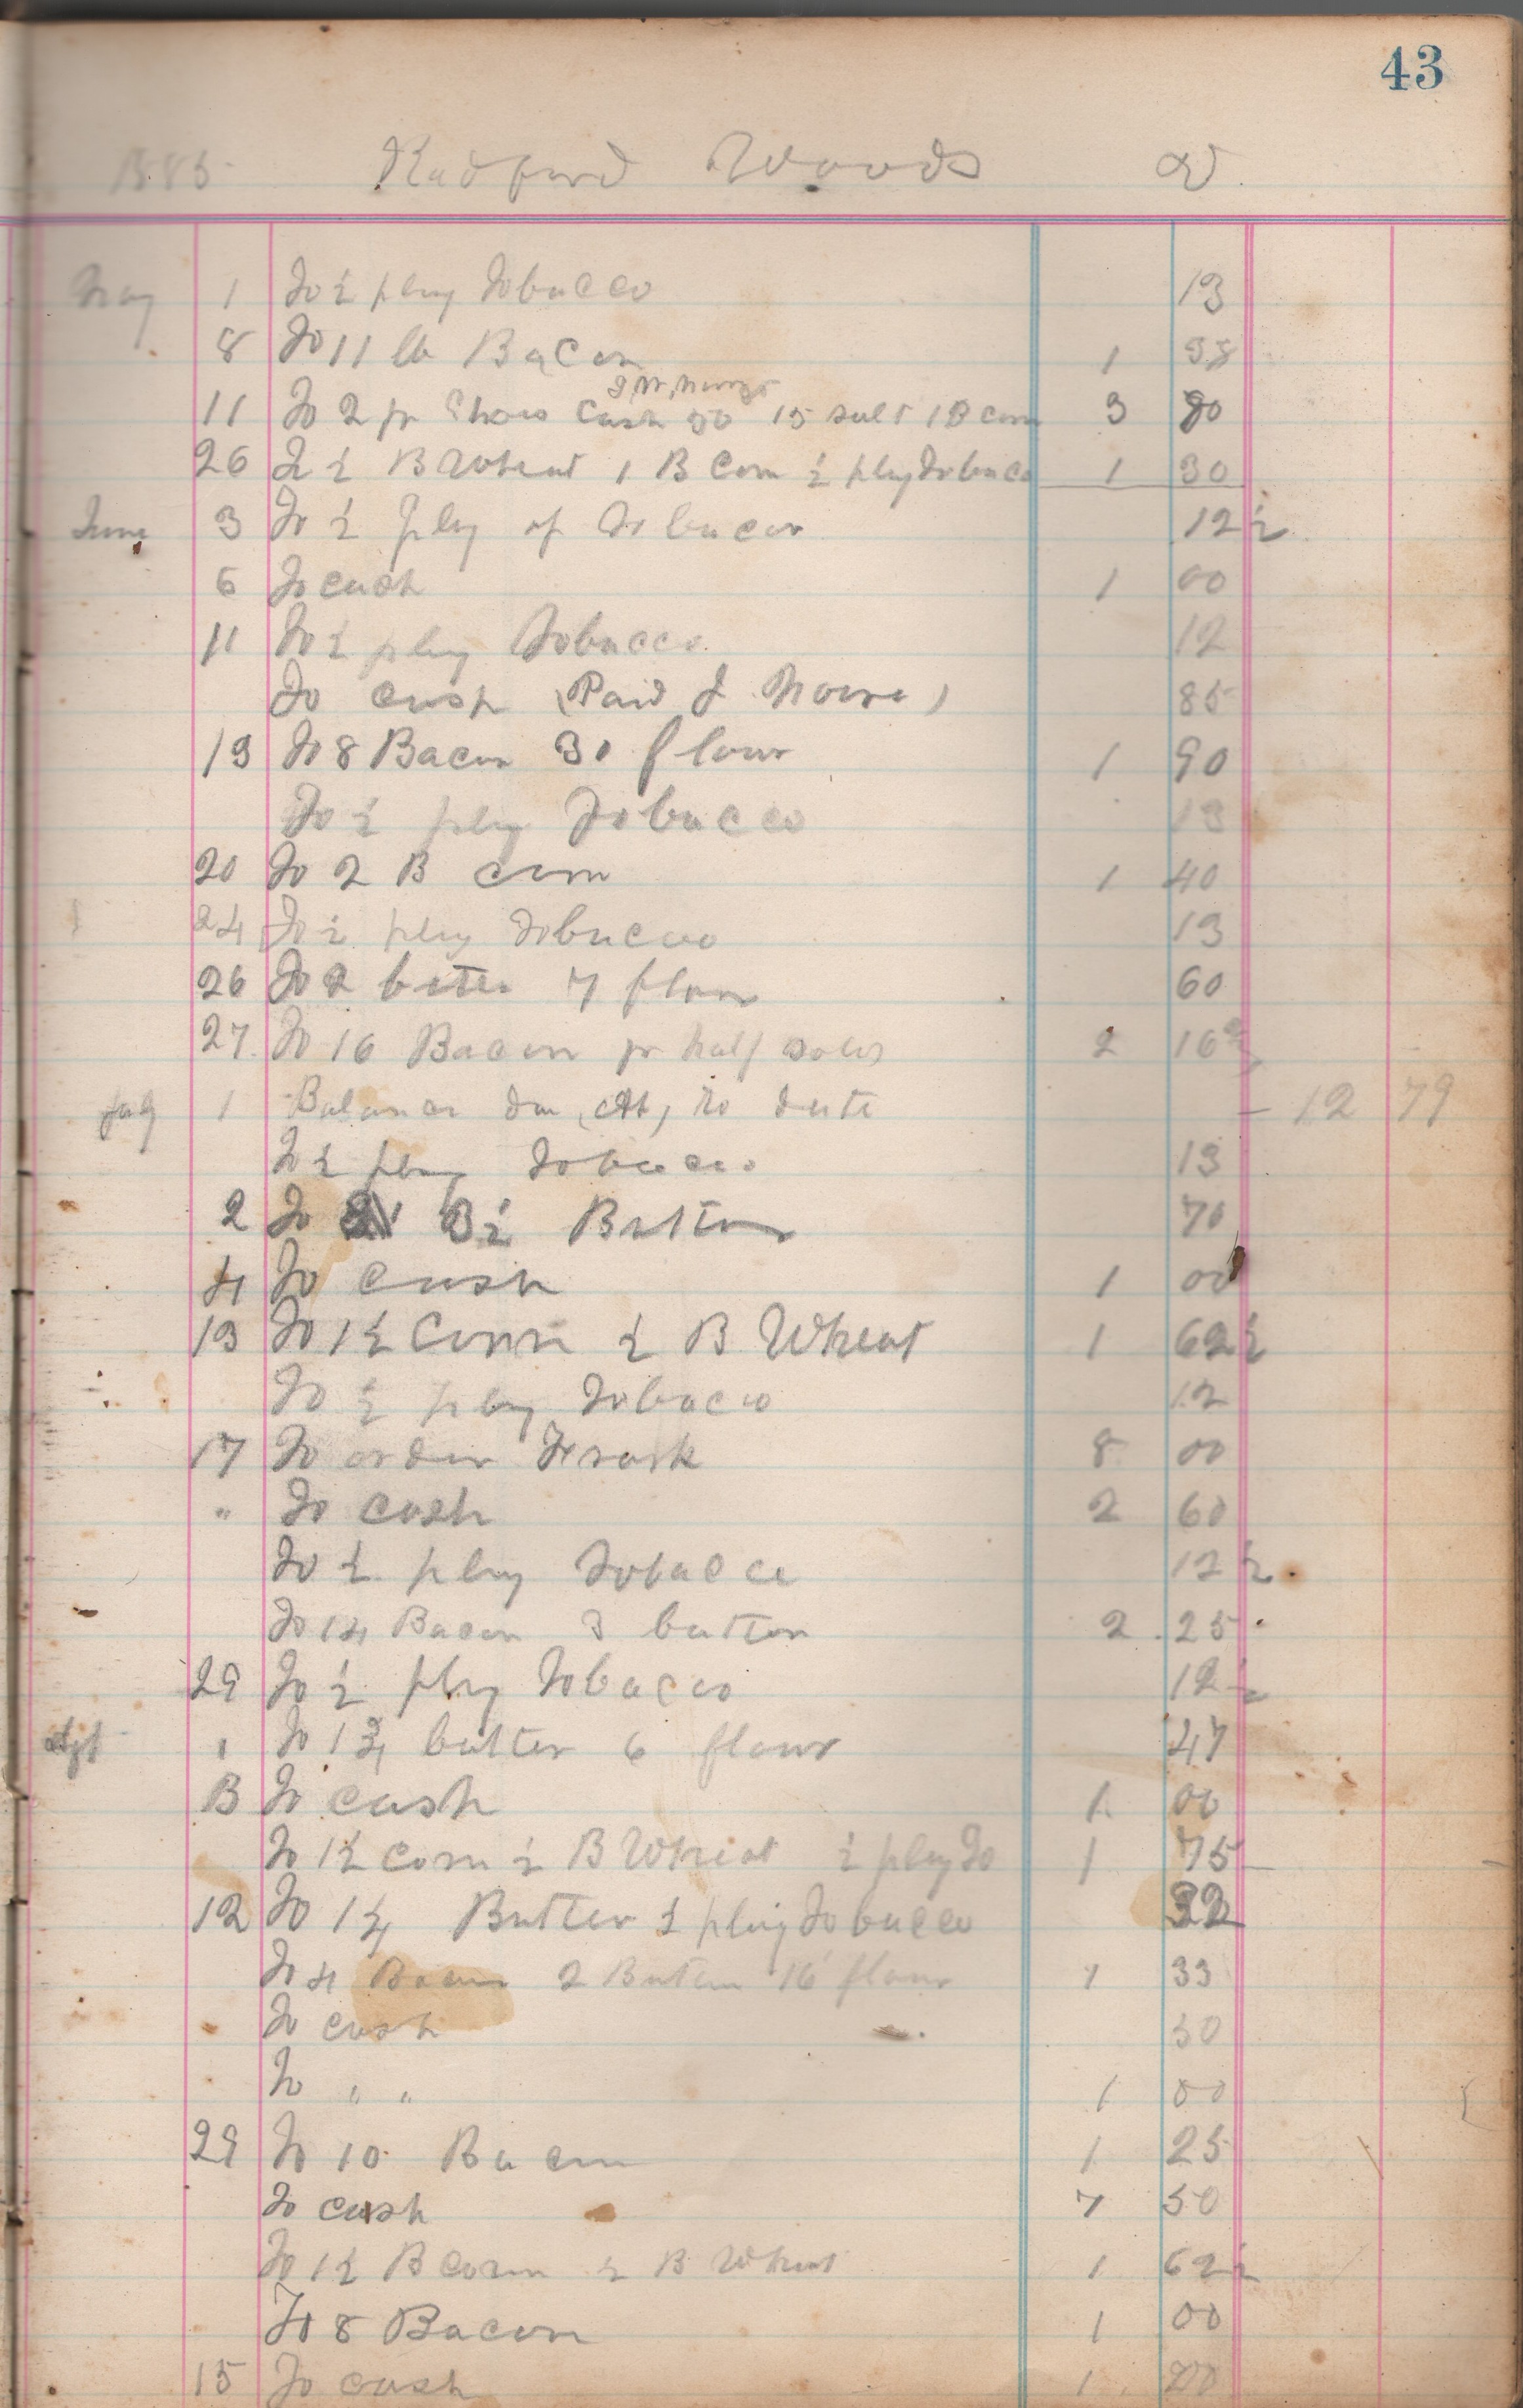 43
1885 Radford Woods Dr
May 1 To ½ plug Tobacco 13
8 To 11 lb Bacon 1 38
11 To 2 pr Shoes Cash 50 15 salt 1 B corn 3 80
26 To ½ B Wheat 1 B Corn ½ plug Tobaco 1 30
June 3 To ½ Plug of Tobacco 12½
6 To cash 1 00
11 To ½ plug Tobacco 12
To cash (Paid J. Moore) 85
13 To 8 Bacon 30 flour 1 90
To ½ plug Tobacco 13
20 To 2 B corn 1 40
24 To ½ plug Tobacco 13
26 To 2 butter 7 flour 60
27 To 16 Bacon pr half soles 2 16
July 1 Balance due to date 12 79
To ½ plug Tobacco 13
2 To 3½ Butter 70
4 To Cash 1 00
13 To 1½ Corn ½ B Wheat 1 62½
To ½ plug Tobacco 12
17 To order 8 00
" To Cash 2 60
To ½ plug Tobacco 12½
To 14 Bacon 3 butter 2 25
29 To ½ plug Tobacco 12½
" To 1¾ butter 6 flour 47
To Cash 1 00
To 1½ Corn ½ B Wheat ½ plug To 1 75
12 To 1¼ Butter ½ plug Tobacco 32
To 4 Bacon 2 Butter 16 flour 1 33
To cash 50
To " " 1 00
29 To 10 Bacon 1 25
To cash 7 50
To 1½ B Corn ½ B Wheat 1 62½
To 8 Bacon 1 00
15 To cash 1 00